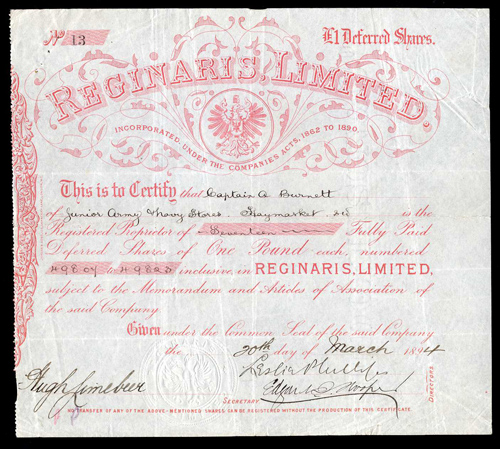 No 13
£1 Deferred Shares.
REGINARIS, LIMITED.
INCORPORATED UNDER THE COMPANIES ACTS, 1862 TO 1890.
This is to Certify that Captain A Burnett
of Junior Army & Navy Stores. Haymarket is the
Registered Proprietor of Seventeen Fully Paid
Deferred Shares of One Pound each, numbered
to inclusive, in REGINARIS, LIMITED,
subject to the Memorandum and Articles of Association of
the said Company.
Given under the Common Seal of the said Company
the 20th day of March 1894
Leslie Phillips
Hugh
DIRECTORS.
SECRETARY
NO TRANSFER OF ANY OF THE ABOVE-MENTIONED SHARES CAN BE REGISTERED WITHOUT THE PRODUCTION OF THIS CERTIFICATE.